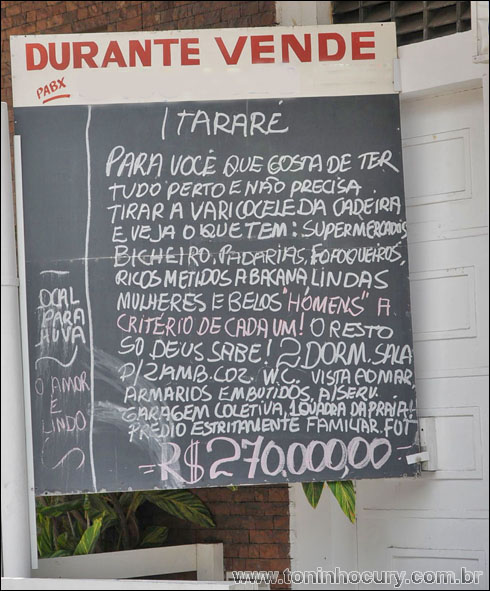 DURANTE VENDE
PABX
ITARARÉ
PARA VOCÊ QUE GOSTA DE TER
TUDO PERTO E NÃO PRECISA
TIRAR A VARICOCELE DA CADEIRA
E VEJA O QUE TEM: SUPERMERCADOS
BICHEIRO, PADARIAS, FOFOQUEIROS,
RICOS METIDOS A BACANA, LINDAS
MULHERES E BELOS "HOMENS" A
CRITÉRIO DE CADA UM! O RESTO
SO DEUS SABE! 2 DORM. SALA
P/2 AMB. COZ. W.C. VISTA AO MAR,
ARMARIOS EMBUTIDOS, A/SERV.
GARAGEM COLETIVA, 1 QUADRA DA PRAIA!
PREDIO ESTRITAMENTE FAMILIAR. FUT
=R$270.000,00=
PARA
O AMOR
É
LINDO
www.toninhocury.com.br